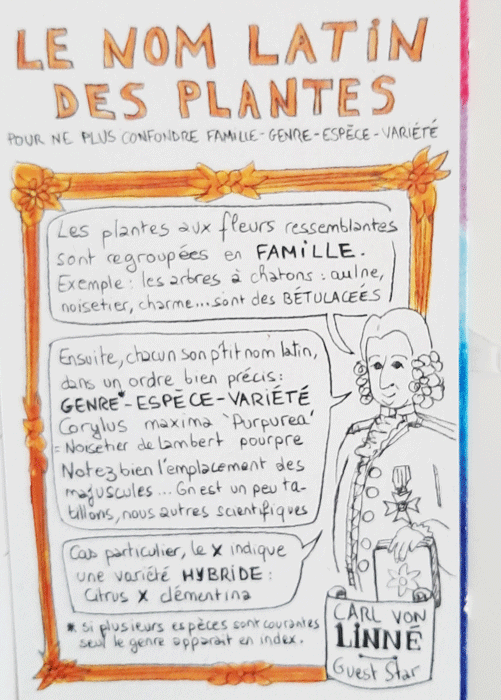 LE NOM LATIN
DES PLANTES
POUR NE PLUS CONFONDRE FAMILLE-GENRE-ESPÈCE-VARIÉTÉ
Les plantes aux fleurs ressemblantes
sont regroupées en FAMILLE.
Exemple: les arbres à chatons: aulne,
noisetier, charme... sont des BÉTULACEÉS
Ensuite, chacun son p'tit nom latin,
dans un ordre bien précis:
GENRE*-ESPÈCE-VARIÉTÉ
Corylus maxima 'Purpurea'
= Noisetier de Lambert pourpre
Notez bien l'emplacement des
majuscules... On est un peu ta-
tillons, nous autres scientifiques
Cas particulier, le X indique
une variété HYBRIDE:
Citrus X clémentina
* si plusieurs espèces sont courantes
seul le genre apparait en index.
CARL VON
LINNÉ
Guest Star